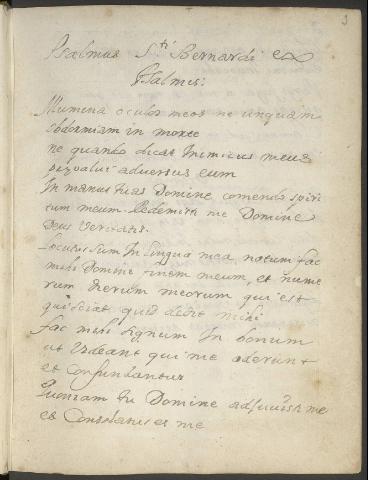 3
Psalmus Sti Bernardi ex
Psalmis:
Illumina oculos meos ne unquam
obdormiam in morte
ne quando dicat Inimicus meus
prevalui adversus eum
In manus tuas Domine comendo spiri
tum meum Redemisti me Domine
Deus veritatis.
Locutus sum In lingua mea notum fac
mihi Domine finem meum, et nume
rum dierum meorum qui est
qui sciat quid deest mihi
fac mihi signum In bonum
ut videant qui me oderunt
et confundantur
Quoniam tu Domine adjuvisti me
et Consolatus es me